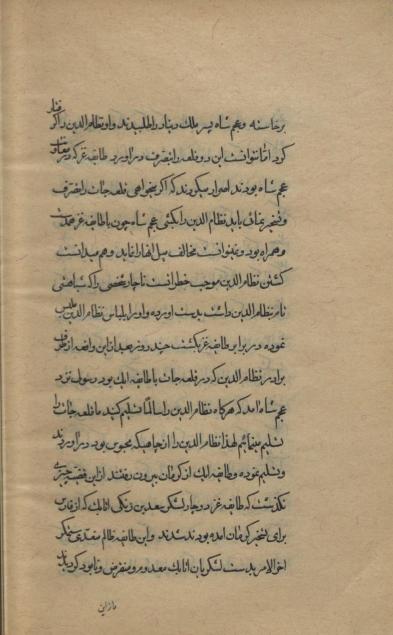 برخاسته و عجم شاه پسر ملک دینار را طلبیدند و او نظام الدین را گرفتار
کرد اما نتوانست این دو قلعه را بتصرف درآورد طایفه غز که در معاونت
عجم شاه بودند اصرار میکردند که اگر بخواهی قلعه جات را بتصرف
و تسخیر نمائی باید نظام الدین را بکشی عجم شاه چون با طایفه غز همدست
و همراه بود و نمیتوانست مخالف میل آنها رفتار نماید و هم میدانست
کشتن نظام الدین موجب خطر است ناچار شخصی را که شباهتی
تام بنظام الدین داشت بدست آورده و او را بلباس نظام الدین ملبس
نموده در برابر طایفه غز بکشت چند روز بعد از این واقعه از طرف
برادر نظام الدین که در قلعه جات با طایفه ایک بود رسول نزد
عجم شاه آمد که هرگاه نظام الدین را سالماً تسلیم کنید ما قلعه جات را
تسلیم مینمائیم لهذا نظام الدین را از چاهیکه محبوس بود درآوردند
و تسلیم نموده و طایفه ایک از کرمان بیرون رفتند از این قضیه چیزی
نگذشت که طایفه غز دوچار لشکر سعد بن زنگی اتابک که از فارس
برای تسخیر کرمان آمده بودند شدند و این طایفه ظالم متعدی ستمگر
آخر الامر بدست لشکریان اتابک معدوم و منقرض و نابود گردیدند